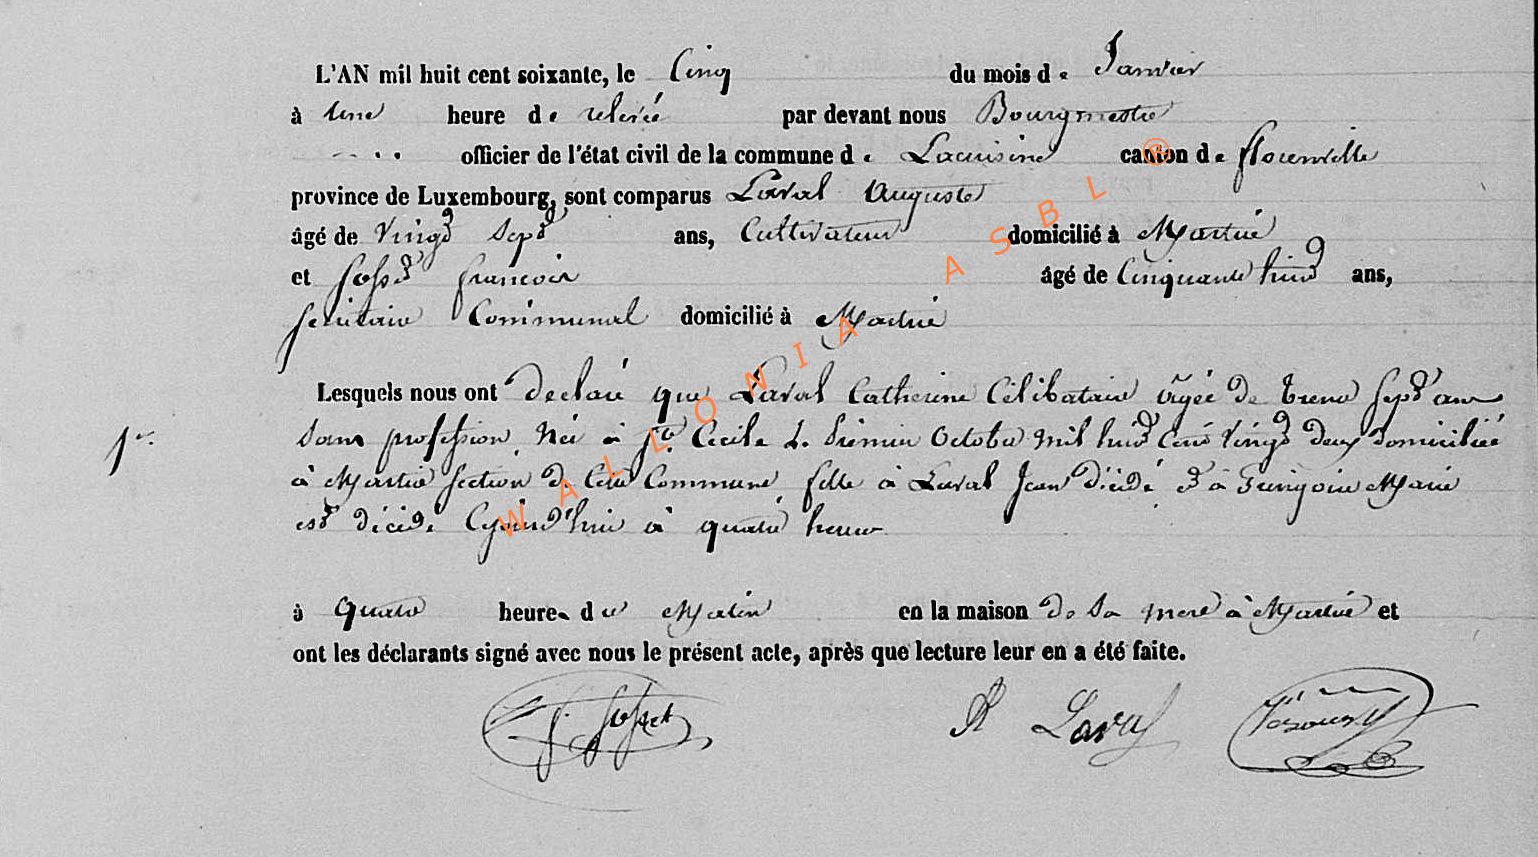 L'AN mil huit cent soixante, le Cinq du mois de Janvier
à Une heure de relevée par devant nous Bourgmestre
officier de l'état civil de la commune de Lacuisine canton de florenville
province de Luxembourg, sont comparus Laval Auguste
âgé de Vingt Sept ans, Cultivateur domicilié à Martué
et françois âgé de Cinquante huit ans,
Secrétaire Communal domicilié à Martué
Lesquels nous ont declaré que Laval Catherine Célibataire âgée de trente Sept ans
1er.
Sans profession Née à Ste Cecile Le Premier Octobre Mil huit Cent Vingt deux domiciliée
à Martué Section de Cette Commune fille à Laval Jean décédé et à Marie
est décédé à quatre heure
à quatre heures du Matin en la maison de Sa mere à Martué et
ont les déclarants signé avec nous le présent acte, après que lecture leur en a été faite.
A Laval
WALLONIA ASBL ®